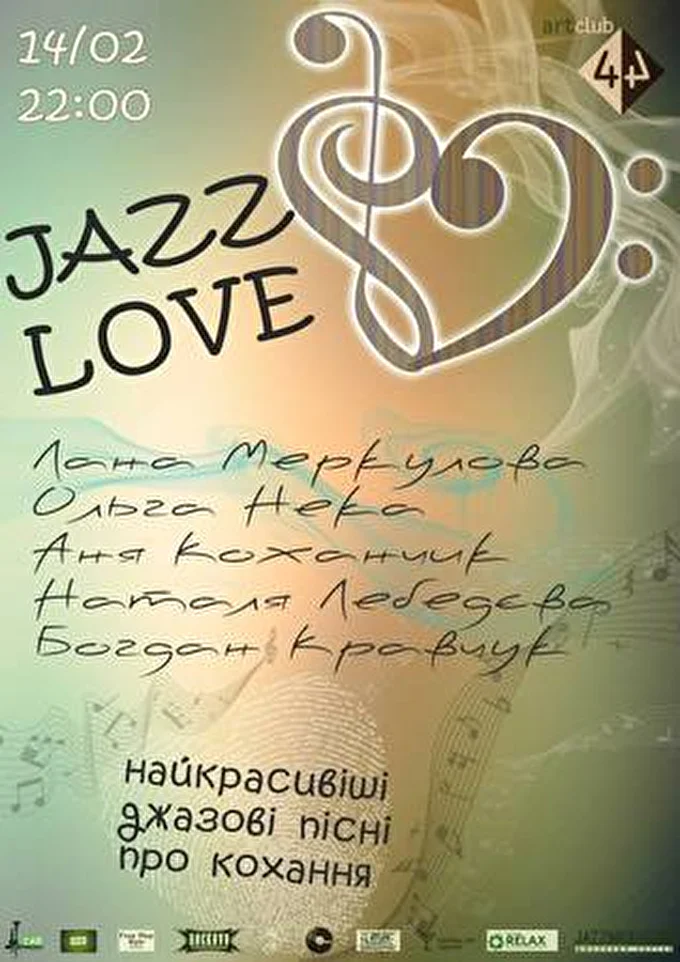 14/02
22:00
artclub
44
JAZZ
LOVE
Лана Меркулова
Ольга Нека
Аня Коханчик
Наталя Лебедєва
Богдан Кравчук
найкрасивіші
джазові пісні
про кохання
RELAX